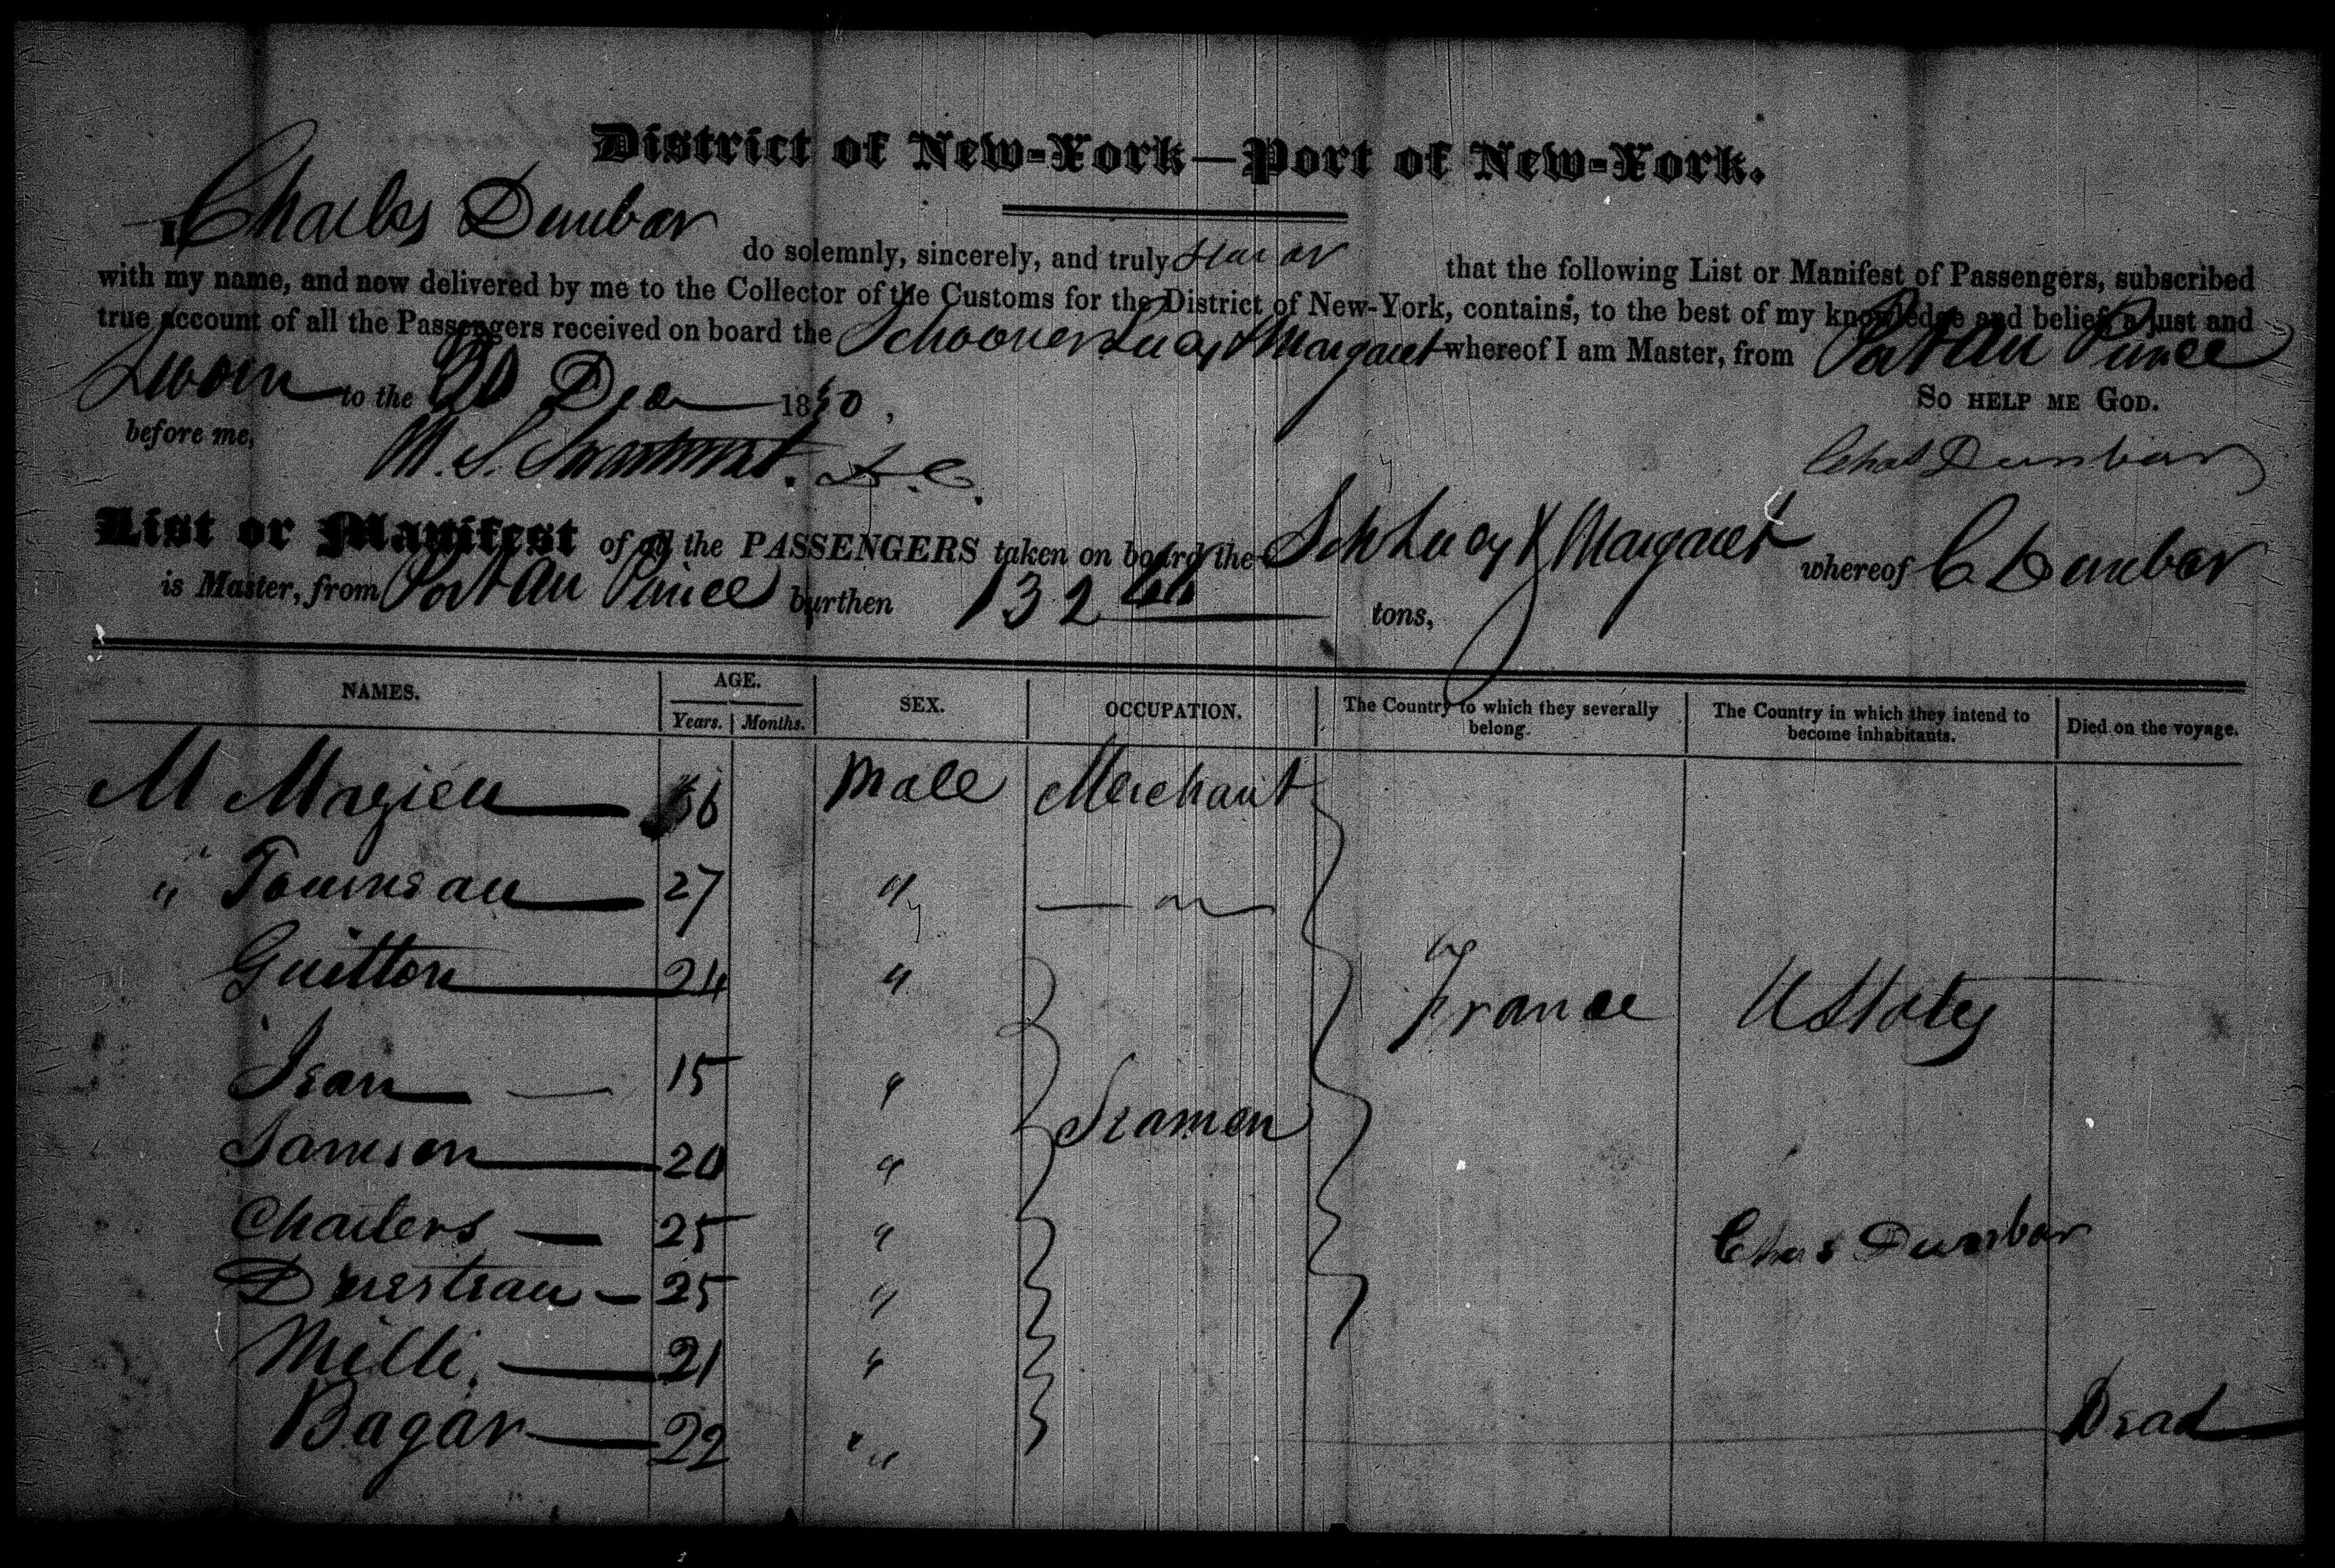 District of New-York—Port of New-York.
I Charles Dunbar do solemnly, sincerely, and truly swear that the following List or Manifest of Passengers, subscribed
with my name, and now delivered by me to the Collector of the Customs for the District of New-York, contains, to the best of my knowledge and belief, a just and
true account of all the Passengers received on board the Schooner Lucy & Margaret whereof I am Master, from Port au Prince
Sworn to the 20 Decr 1850,
So help me God.
before me,
Chas Dunbar
List or Manifest of all the PASSENGERS taken on board the Sch Lucy & Margaret whereof C Dunbar
is Master, from Port au Prince burthen 132 tons,
NAMES. AGE. SEX. OCCUPATION. The Country to which they severally belong. The Country in which they intend to become inhabitants. Died on the voyage.
Years. Months.
M Mazieu 36 Male Merchant
" 27 " "
Guitton 24 "
France U States
Jean 15 "
Seamen
Samson 20 "
Charters 25 "
Chas Dunbar
25 "
Milli 21 "
Bagar 22 " Dead